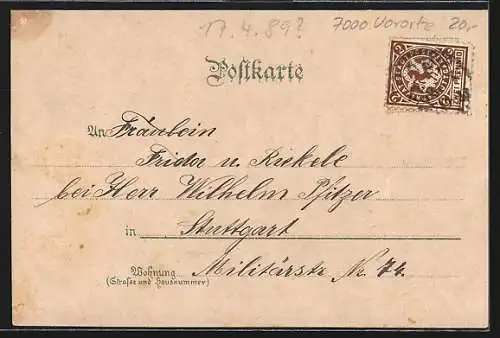 17.4.89? 7000 Vororte 20,-
Postkarte
An Fräulein
Frida u. Rickele
bei Herr Wilhelm Pfitzer
in Stuttgart
Wohnung Militärstr. No. 74.
(Strasse und Hausnummer)